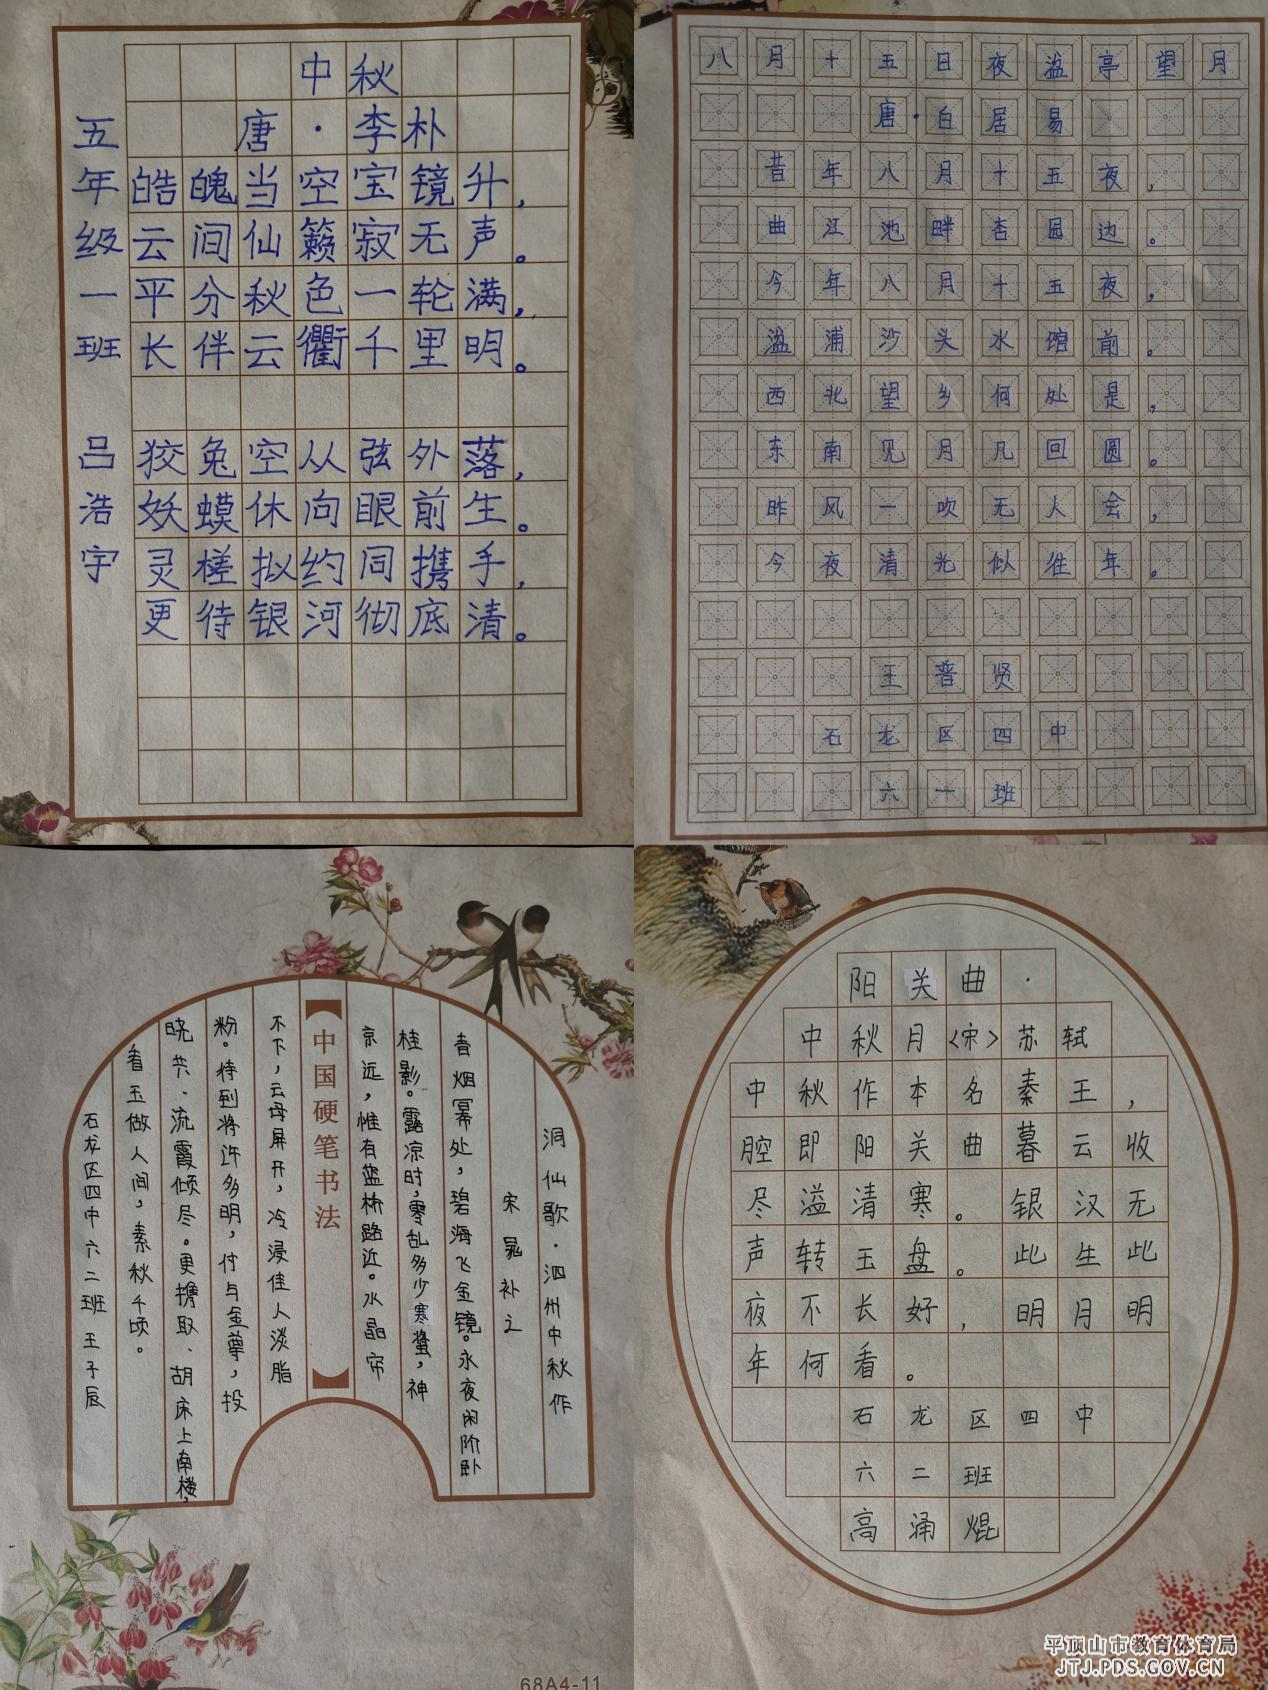 中秋
唐·李朴
皓魄当空宝镜升，
云间仙籁寂无声。
平分秋色一轮满，
长伴云衢千里明。
狡兔空从弦外落，
妖蟆休向眼前生。
灵槎拟约同携手，
更待银河彻底清。
五年级一班 吕浩宇
八月十五日夜湓亭望月
唐·白居易
昔年八月十五夜，
曲江池畔杏园边。
今年八月十五夜，
湓浦沙头水馆前。
西北望乡何处是，
东南见月几回圆。
昨风一吹无人会，
今夜清光似往年。
王普贤
石龙区四中
六一班
洞仙歌·泗州中秋作
宋 晁补之
青烟幂处，碧海飞金镜。永夜闲阶卧
桂影。露凉时，零乱多少寒螀，神
京远，惟有蓝桥路近。水晶帘
中国硬笔书法
不下，云母屏开，冷浸佳人淡脂
粉。待到将许多明，付与金尊，投
晓共、流霞倾尽。更携取、胡床上南楼，
看玉做人间，素秋千顷。
石龙区四中六二班 王子辰
68A4-11
阳关曲·
中秋月<宋>苏轼
中秋作本名秦王，
腔即阳关曲暮云收
尽溢清寒。银汉无
声转玉盘。此生此
夜不长好，明月明
年何看。
石龙区四中
六二班
高涌焜
平顶山市教育体育局
JTJ.PDS.GOV.CN